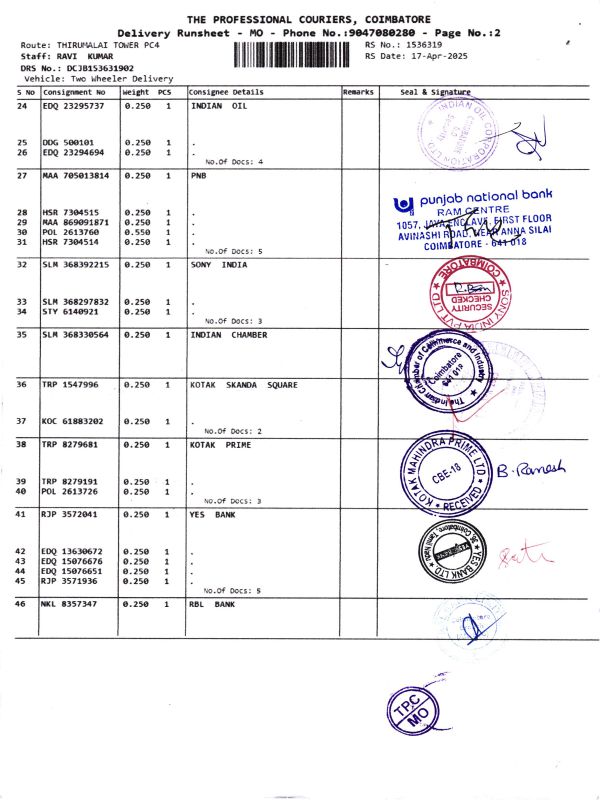 THE PROFESSIONAL COURIERS, COIMBATORE
Delivery Runsheet - MO - Phone No.:9047080280 - Page No.:2
Route: THIRUMALAI TOWER PC4
RS No.: 1536319
Staff: RAVI KUMAR
RS Date: 17-Apr-2025
DRS No.: DCJB153631902
Vehicle: Two Wheeler Delivery
S No Consignment No Weight PCS Consignee Details Remarks Seal & Signature
24 EDQ 23295737 0.250 1 INDIAN OIL
INDIAN OIL CORPORATION LTD.
COIMBATORE
25 DDG 500101 0.250 1 .
26 EDQ 23294694 0.250 1 .
No.Of Docs: 4
27 MAA 705013814 0.250 1 PNB
punjab national bank
RAM CENTRE
1057, JAYA ENCLAVE, FIRST FLOOR
AVINASHI ROAD, NEAR ANNA SILAI
COIMBATORE - 641 018
28 HSR 7304515 0.250 1 .
29 MAA 869091871 0.250 1 .
30 POL 2613760 0.550 1 .
31 HSR 7304514 0.250 1 .
No.Of Docs: 5
32 SLM 368392215 0.250 1 SONY INDIA
SONY INDIA PVT LTD
COIMBATORE
SECURITY
CHECKED
33 SLM 368297832 0.250 1 .
34 STY 6140921 0.250 1 .
No.Of Docs: 3
35 SLM 368330564 0.250 1 INDIAN CHAMBER
The Indian Chamber of Commerce and Industry
Coimbatore
641 018
36 TRP 1547996 0.250 1 KOTAK SKANDA SQUARE
37 KOC 61883202 0.250 1 .
No.Of Docs: 2
38 TRP 8279681 0.250 1 KOTAK PRIME
KOTAK MAHINDRA PRIME LTD
CBE-18
RECEIVED
B. Ramesh
39 TRP 8279191 0.250 1 .
40 POL 2613726 0.250 1 .
No.Of Docs: 3
41 RJP 3572041 0.250 1 YES BANK
YES BANK LTD
Coimbatore, Tamil Nadu
42 EDQ 13630672 0.250 1 .
43 EDQ 15076676 0.250 1 .
44 EDQ 15076651 0.250 1 .
45 RJP 3571936 0.250 1 .
No.Of Docs: 5
46 NKL 8357347 0.250 1 RBL BANK
TPC
MO